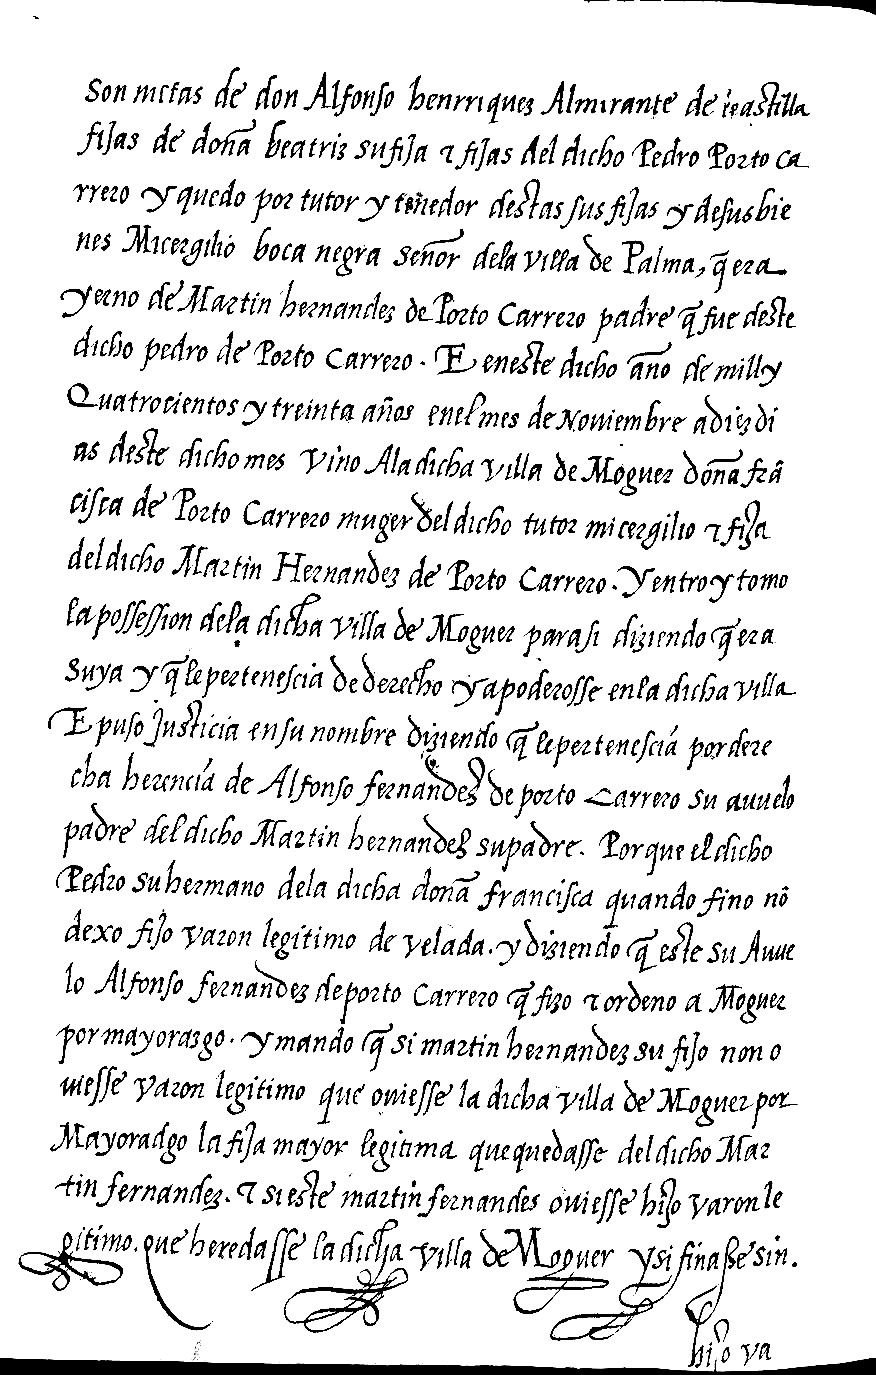 son nietas de don Alfonso henrriquez Almirante de castilla
fijas de doña beatriz su fija τ fijas del dicho Pedro Porto ca
rrero y quedo por tutor y tenedor destas sus fijas y de sus bie
nes Micergilio boca negra señor dela villa de Palma, q̃ era
yerno de Martin hernandez de Porto Carrero padre q̃ fue deste
dicho pedro de Porto Carrero. E eneste dicho año de mill y
Quatrocientos y treinta años enel mes de Noviembre a diez di
as deste dicho mes vino Ala dicha villa de Moguer doña frã
cisca de Porto Carrero muger del dicho tutor micergilio τ fija
del dicho Martin Hernandez de Porto Carrero. Y entro y tomo
la possession dela dicha villa de Moguer para si diziendo q̃ era
suya y q̃ le pertenescia de derecho y apoderosse en la dicha villa
E puso Justicia en su nombre diziendo q̃ le pertenescia por dere
cha herencia de Alfonso fernandez de porto Carrero su auuelo
padre del dicho Martin hernandez su padre. Porque el dicho
Pedro su hermano dela dicha doña francisca quando fino nõ
dexo fijo varon legitimo de velada. y diziendo q̃ este su Auue
lo Alfonso fernandez de porto Carrero q̃ fizo τ ordeno a Moguer
por mayorazgo. y mando q̃ si martin hernandez su fijo non o
uiesse varon legitimo que ouiesse la dicha villa de Moguer por
Mayoradgo la fija mayor legitima que quedasse del dicho Mar
tin fernandez. τ si este martin fernandes ouiesse hijo varon le
gitimo. que heredasse la dicha villa de Moguer y si finasse sin.
hijo va